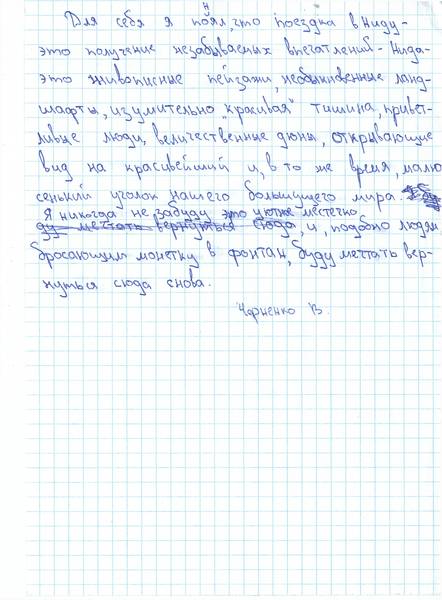 Для себя я понял, что поездка в Ниду -
это получение незабываемых впечатлений - Нида-
это живописные пейзажи, необыкновенные ланд-
шафты, изумительно "красивая" тишина, привет-
ливые люди, величественные дюны, открывающие
вид на красивейший и, в то же время, малю
сенький уголок нашего большущего мира.
Я никогда не забуду это уютное местечко
ду мечтать вернуться сюда, и, подобно людям
бросающим монетку в фонтан, буду мечтать вер-
нуться сюда снова.
Черненко В.